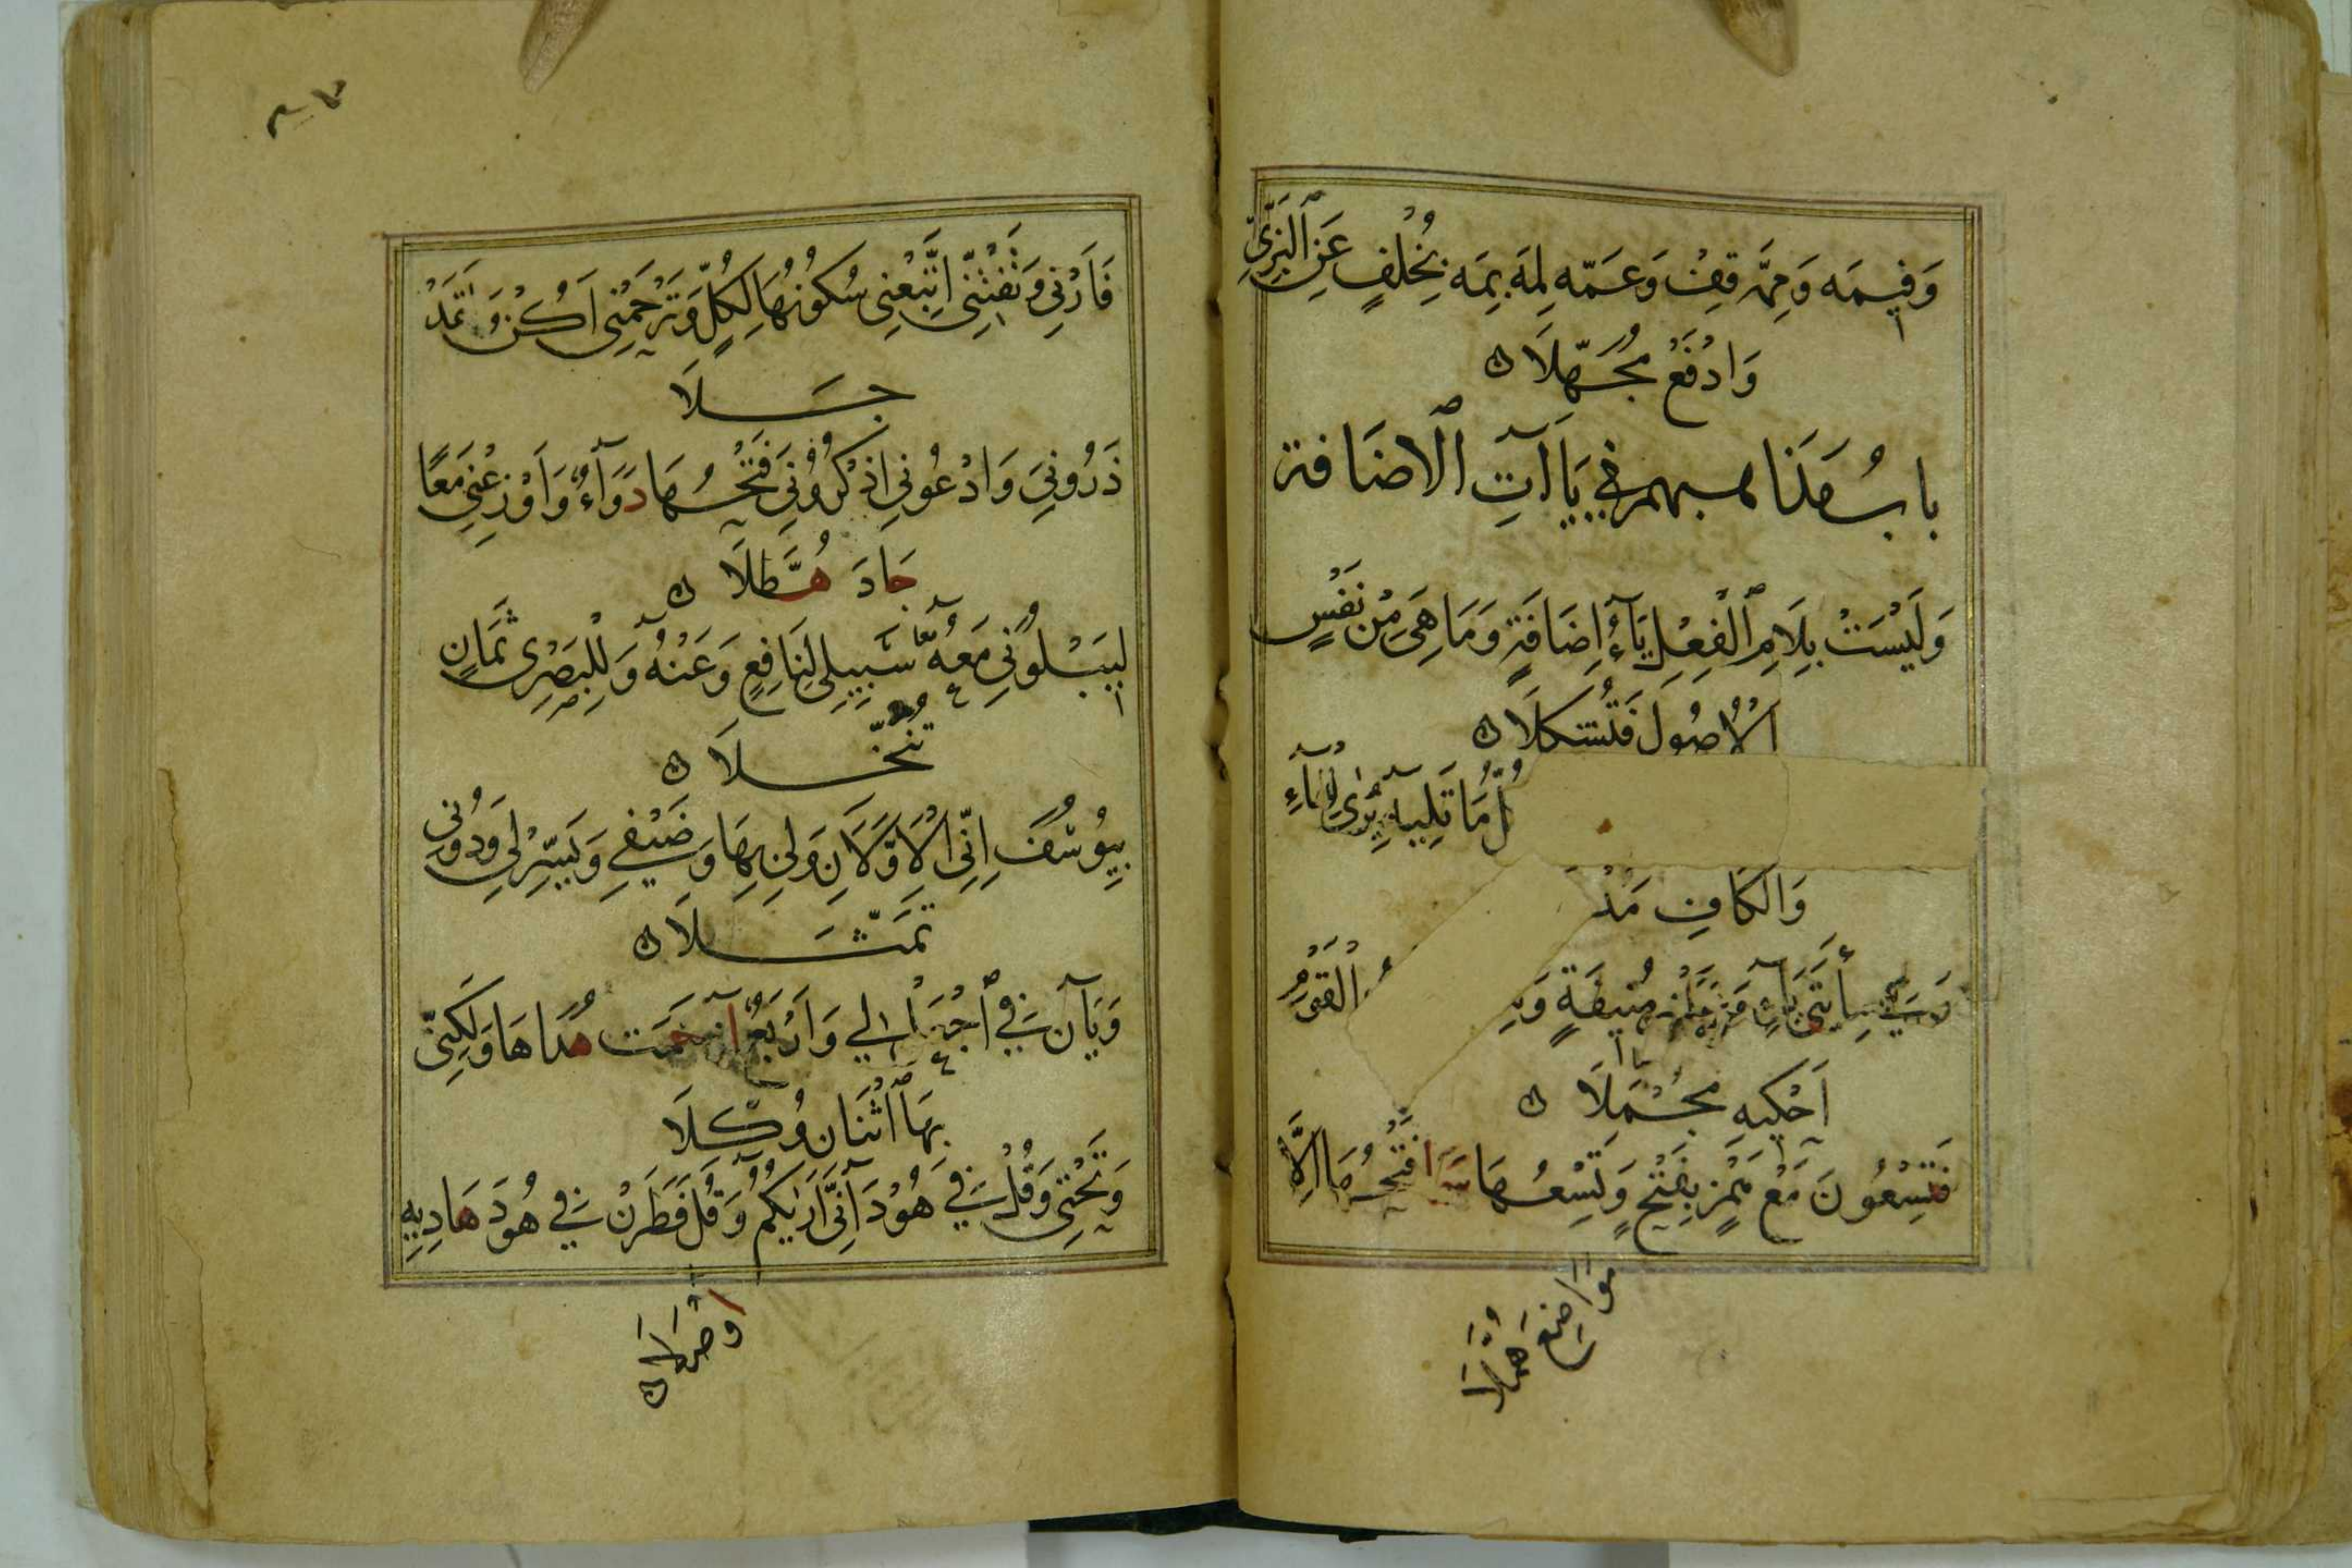 وَفِيمَهْ وَمِمَّهْ قِفْ وَعَمَّهْ لِمَهْ بِمَهْ بِخُلْفٍ عَنِ ٱلْبَزِّيِّ
وَادْفَعْ مُجَهِّلَا
بابُ مَذَاهبهم في يَاآتِ ٱلاضَافة
وَلَيْسَتْ بِلَامِ ٱلْفِعْلِ يَآءُ اِضَافَةٍ وَمَا هِيَ مِنْ نَفْسِ
الْاُصُولِ فَتُشْكِلَا
مَا تَلِيهِ يُرَى لِلْهَآءِ
وَالْكَافِ مَدْ
يَآءٍ وَعَشْرٍ مُنِيفَةٍ الْقَوْمِ
اَحْكِيهِ مُجْمَلَا
فَتِسْعُونَ مَعْ هَمْزٍ بِفَتْحٍ وَتِسْعُهَا سَمَا فَتْحُهَا اِلَّا
مَوَاضِعَ هُمَّلَا
فَاَرْنِي وَتَفْتِنِّي اتَّبِعْنِي سُكُونُهَا لِكُلٍّ وَتَرْحَمْنِي اَكُنْ وَلَقَدْ
جَلَا
ذَرُونِيَ وَادْعُونِي اذْكُرُونِيَ فَتْحُهَا دَوَآءٌ وَاَوْزِعْنِي مَعًا
جَادَ هُطَّلَا
لِيَبْلُوَنِي مَعْهُ سَبِيلِي لِنَافِعٍ وَعَنْهُ وَلِلْبَصْرِي ثَمَانٍ
تُنُخِّلَا
بِيُوسُفَ اِنِّي الْاَوَّلَانِ وَلِي بِهَا وَضَيْفِي وَيَسِّرْ لِي وَدُونِي
تَمَثَّلَا
وَيَآنِ فِي ٱجْعَلْ لِي وَاَرْبَعٌ اذْ حَمَتْ هُدَاهَا وَلَكِنِّي
بِهَا ٱثْنَانِ وُكِّلَا
وَتَحْتِي وَقُلْ فِي هُودَ اِنِّي اَرَىٰكُمُ وَقُلْ فَطَرَنْ فِي هُودَ هَادِيهِ
اَوْصَلَا